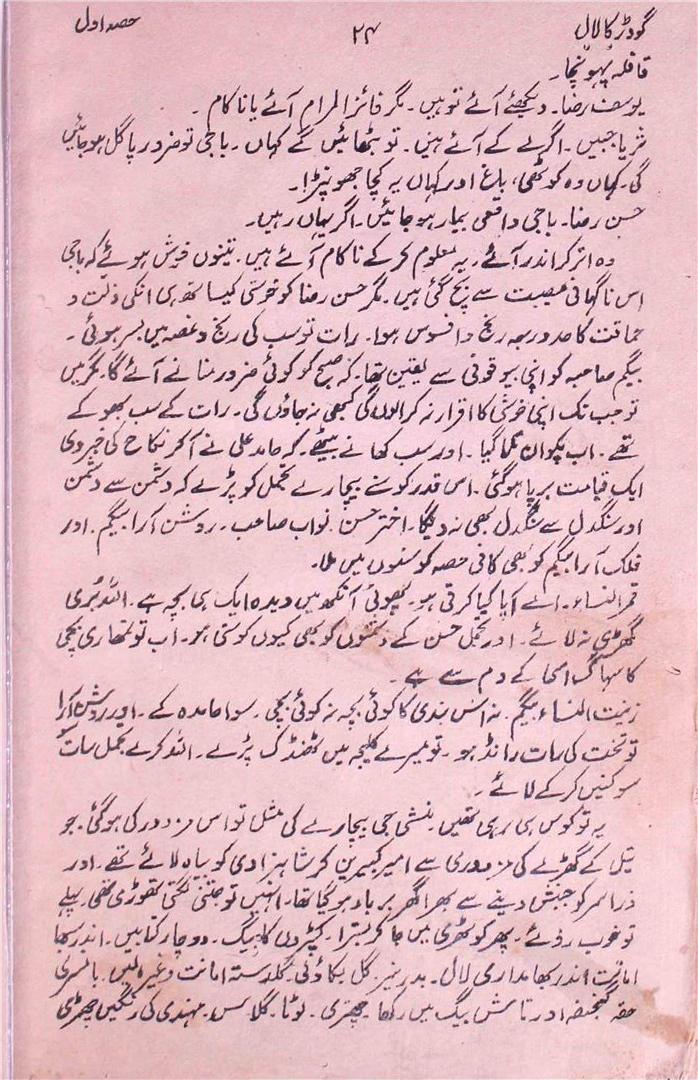 گودڑ کا لال ۲۴ حصہ اول
قافلہ پہونچا۔
یوسف رضا۔ دیکھئے آئے تو ہیں۔ مگر فائز المرام آئے یا ناکام۔
ثریا جبیں۔ اگر لے کے آئے ہیں۔ تو بٹھائیں گے کہاں۔ باجی تو ضرور پاگل ہو جائیں
گی۔ کہاں وہ کوٹھی، باغ اور کہاں یہ کچا جھونپڑا۔
حسن رضا۔ باجی واقعی بیمار ہو جائیں۔ اگر یہاں رہیں۔
وہ اتر کر اندر آئے۔ یہ معلوم کر کے ناکام آئے ہیں۔ تینوں خوش ہوئے کہ باجی
اس ناگہانی مصیبت سے بچ گئی ہیں۔ مگر حسن رضا کو خوشی کیساتھ ہی انکی ذلت و
حماقت کا حد درجہ رنج و افسوس ہوا۔ رات تو سب کی رنج و غصہ میں بسر ہوئی۔
بیگم صاحبہ کو اپنی بیوقوفی سے یقین تھا۔ کہ صبح کو کوئی ضرور منانے آئے گا۔ مگر میں
تو جب تک اپنی خوشی کا اقرار نہ کرالوں گی کبھی نہ جاؤں گی۔ رات کے سب بھوکے
تھے۔ اب پکوان تلا گیا۔ اور سب کھانے بیٹھے۔ کہ حامد علی نے آکر نکاح کی خبر دی
ایک قیامت برپا ہوگئی۔ اس قدر کوسنے بیچارے تجمل کو پڑے کہ دشمن سے دشمن
اور سنگدل سے سنگدل بھی نہ دیگا۔ اختر حسن۔ نواب صاحب۔ روشن آرا بیگم۔ اور
فلک آرا بیگم کو بھی کافی حصہ کوسنوں میں ملا۔
قمر النساء۔ اے آپا کیا کرتی ہو۔ پھوٹی آنکھ میں دیدہ ایک ہی بچہ ہے۔ اللہ بُری
گھڑی نہ لائے۔ اور تجمل حسن کے دشمنوں کو بھی کیوں کوستی ہو۔ اب تو تمھاری بچی
کا سہاگ اسی کے دم سے ہے۔
زینت النساء بیگم۔ نہ اس بندی کا کوئی بچہ نہ کوئی بچی۔ سوا حامدہ کے۔ اور روشن آرا
تو تخت کی رات رانڈ ہو۔ تو میرے کلیجہ میں ٹھنڈک پڑے۔ اللہ کرے تجمل سات
سوکنیں کر کے لائے۔
یہ تو کوس ہی رہی تھیں۔ منشی جی بیچارے کی مثل تو اس مزدور کی ہوگئی۔ جو
تیل کے گھڑے کی مزدوری سے امیر کبیر بن کر شاہزادی کو بیاہ لائے تھے۔ اور
ذرا سر کو جنبش دینے سے بھرا گھر برباد ہو گیا تھا۔ انہیں تو جتنی لگتی تھوڑی تھی۔ پہلے
تو خوب روئے۔ پھر کوٹھری میں جا کر بسترا۔ کپڑوں کا بیگ۔ دو چار کتابیں۔ اندر سبھا
امانت اندر سبھا مداری لال۔ بدر منیر گل بکاؤلی۔ گلدستہ امانت وغیرہ لیں۔ بانسری
حقہ گنجفہ اور تاش بیگ میں رکھا چھتری۔ لوٹا۔ گلاس۔ مہندی کی رنگین چھڑی